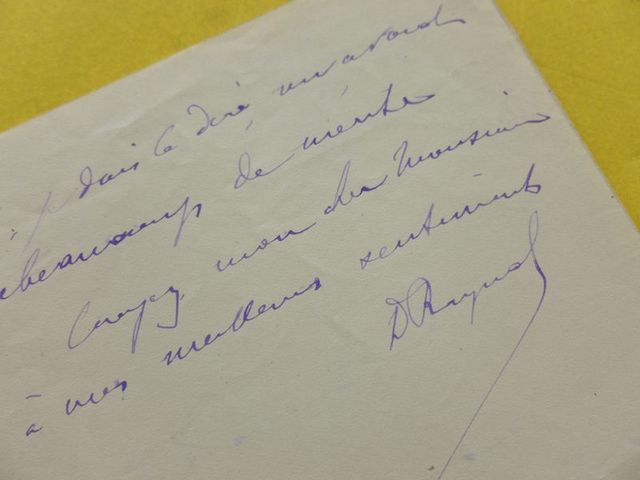 je dois le dire, un avocat
beaucoup de mérite
Croyez mon cher Monsieur
à mes meilleurs sentiments
D Raynal